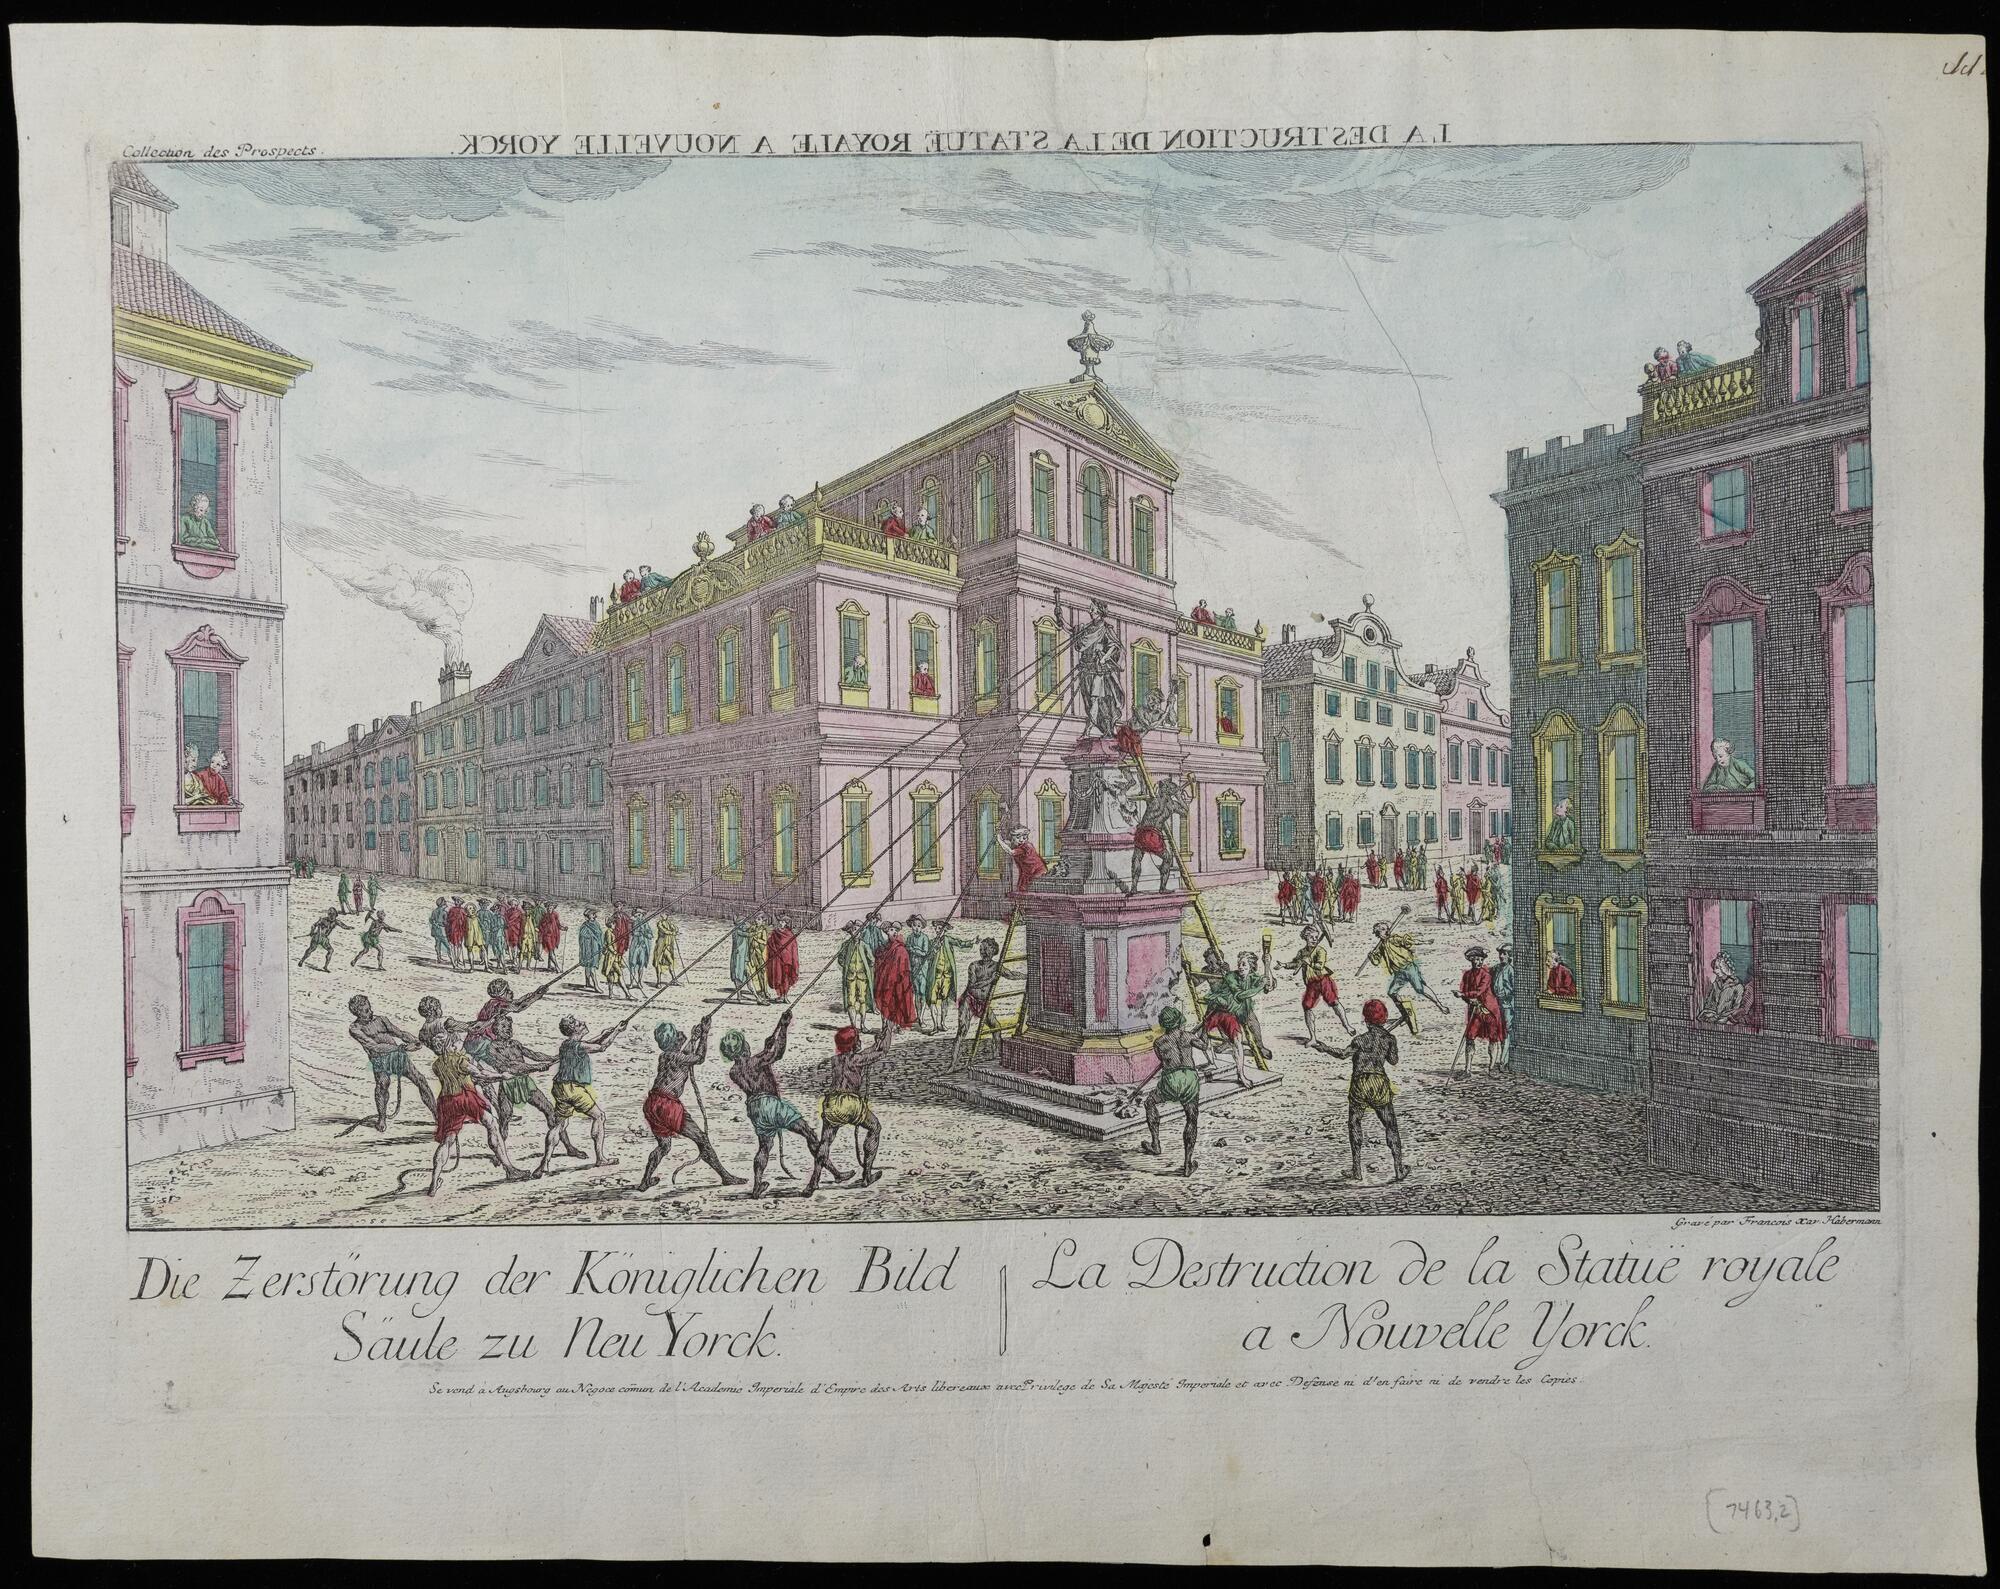 Collection des Prospects.
LA DESTRUCTION DE LA STATUE ROYALE A NOUVELLE YORCK.
Gravé par Francois Xav. Habermann
Die Zerstörung der Königlichen Bild
Säule zu Neu Yorck.
La Destruction de la Statuë royale
a Nouvelle Yorck.
Se vend à Augsbourg au Negoce comun de l'Academie Imperiale d'Empire des Arts libereaux avec Privilege de Sa Majesté Imperiale et avec Defense ni d'en faire ni de vendre les Copies.
[7463,2]